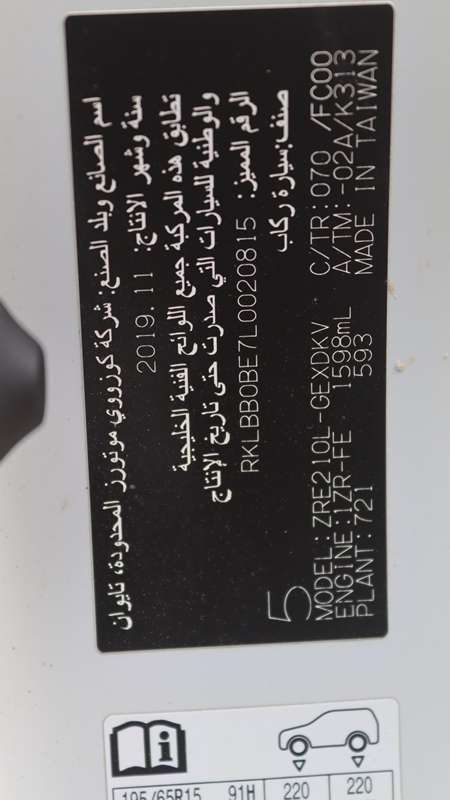 اسم الصانع وبلد الصنع: شركة كوزووي موتورز المحدودة، تايوان
سنة وشهر الإنتاج: 2019.11
تطابق هذه المركبة جميع اللوائح الفنية الخليجية
والوطنية للسيارات التي صدرت حتى تاريخ الإنتاج
الرقم المميز: RKLBB0BE7L0020815
صنف: سيارة ركاب
5
MODEL:ZRE210L-GEXDKV C/TR:070 /FC00
ENGINE:1ZR-FE 1598mL A/TM:-02A/K313
PLANT:721 593 MADE IN TAIWAN
195/65R15 91H 220 220